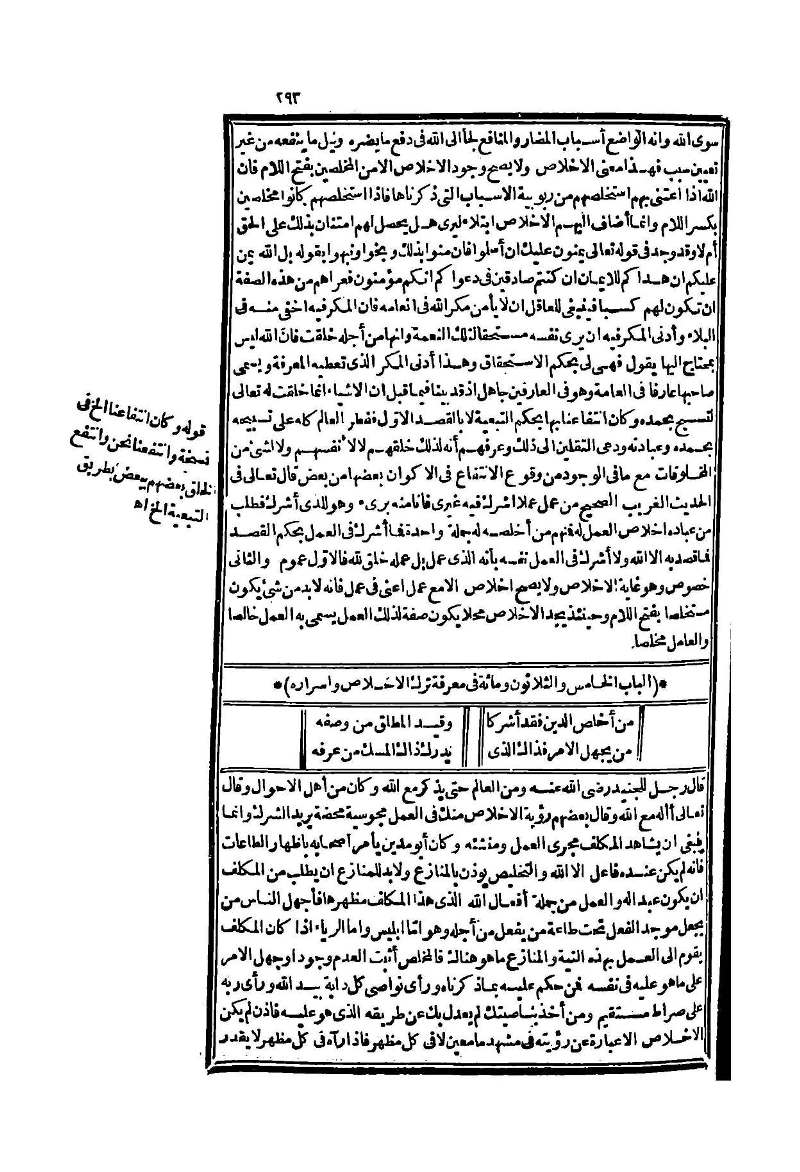 ٢٩٣
سوى الله وانه الواضع أسباب المضار والمنافع لجأ الى الله فى دفع ما يضره ونيل ما ينفعه من غير
تعيين سبب فهذا معنى الاخلاص ولا يصح وجود الاخلاص الا من المخلصين بفتح اللام فان
الله اذا اعتنى بهم استخلصهم من ربوبية الاسباب التى ذكرناها فاذا استخلصهم كانوا مخلصين
بكسر اللام وانما أضاف اليهم الاخلاص ابتلاء ليرى هل يحصل لهم امتنان بذلك على الحق
أم لا وقد وجد فى قوله تعالى يمنون عليك ان أسلموا فان منوا بذلك وبخوا ونبهوا بقوله بل الله يمن
عليكم ان هداكم للايمان ان كنتم صادقين فى دعواكم انكم مؤمنون فعراهم من هذه الصفة
ان تكون لهم كسبا فينبغى للعاقل ان لا يأمن مكر الله فى انعامه فان المكر فيه اخفى منه فى
البلاء وأدنى المكر فيه ان يرى نفسه مستحقا لتلك النعمة وانها من أجله خلقت فان الله ليس
بمحتاج اليها يقول فهى لى بحكم الاستحقاق وهذا أدنى المكر الذى تعطيه المعرفة ويسمى
صاحبها عارفا فى العامة وهو فى العارفين جاهل اذ قد بينا فيما قبل ان الاشياء انما خلقت له تعالى
لتسبح بحمده وكان انتفاعنا بها بحكم التبعية لا بالقصد الاول ففطر العالم كله على تسبيحه
بحمده وعبادته ودعى الثقلين الى ذلك وعرفهم أنه لذلك خلقهم لا لانفسهم ولا لشئ من
المخلوقات مع ما فى الوجود من وقوع الانتفاع فى الاكوان بعضها من بعض قال تعالى فى
الحديث الغريب الصحيح من عمل عملا اشرك فيه غيرى فانا منه برىء وهو للذى أشرك فطلب
من عباده اخلاص العمل له فمنهم من أخلصه له جملة واحدة فما أشرك فى العمل بحكم القصد
فما قصد به الا الله ولا أشرك فى العمل نفسه بأنه الذى عمل بل عمله خلق لله فالاول عموم والثانى
خصوص وهو غاية الاخلاص ولا يصح اخلاص الا مع عمل اعنى فى عمل فانه لا بد من شئ يكون
مستخلصا بفتح اللام وحينئذ يجد الاخلاص محلا يكون صفة لذلك العمل يسمى به العمل خالصا
والعامل مخلصا.
قوله وكان انتفاعنا الخ فى
نسخة وانتفعنا نحن وانتفع
الخلق بعضهم ببعض بطريق
التبعية الخ اه
*(الباب الخامس والثلاثون ومائة فى معرفة ترك الاخلاص واسراره)*
من أخلص الدين فقد أشركا وقيد المطلق من وصفه
من يجهل الامر فذاك الذى يدرك ذاك المسك من عرفه
قال رجل للجنيد رضى الله عنه ومن العالم حتى يذكر مع الله وكان من أهل الاحوال وقال
تعالى أاله مع الله وقال بعضهم رؤية الاخلاص منك فى العمل مجوسية محضة يريد الشرك وانما
ينبغى ان يشاهد المكلف مجرى العمل ومنشئه وكان أبو مدين يأمر أصحابه باظهار الطاعات
فانه لم يكن عنده فاعل الا الله والتخليص يؤذن بالمنازع ولا بد للمنازع ان يطلب من المكلف
ان يكون عبدا له والعمل من جملة أفعال الله الذى هذا المكلف مظهرها فأجهل الناس من
يجعل موجد الفعل تحت طاعة من يفعل من أجله وهو اما ابليس واما الرياء اذا كان المكلف
يقوم الى العمل بهذه النية والمنازع ما هو هنالك فالمخلص أثبت العدم وجودا وجهل الامر
على ما هو عليه فى نفسه فمن حكم عليه بما ذكرناه ورأى نواصى كل دابة بيد الله ورأى ربه
على صراط مستقيم ومن أخذ بناصيتك لم يعدل بك عن طريقه الذى هو عليه فاذن لم يكن
الاخلاص الا عبارة عن رؤيته فى مشهد ما معين لا فى كل مظهر فاذا رآه فى كل مظهر لا يقدر